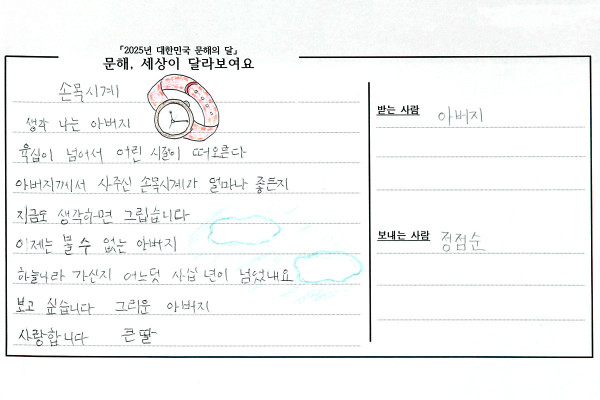 『2025년 대한민국 문해의 달』
문해, 세상이 달라보여요
손목시계
생각 나는 아버지
육십이 넘어서 어린 시절이 떠오른다
아버지께서 사주신 손목시계가 얼마나 좋든지
지금도 생각하면 그립습니다
이제는 볼 수 없는 아버지
하늘나라 가신지 어느덧 사십 년이 넘었내요
보고 싶습니다 그리운 아버지
사랑합니다 큰딸
받는 사람 아버지
보내는 사람 정점순